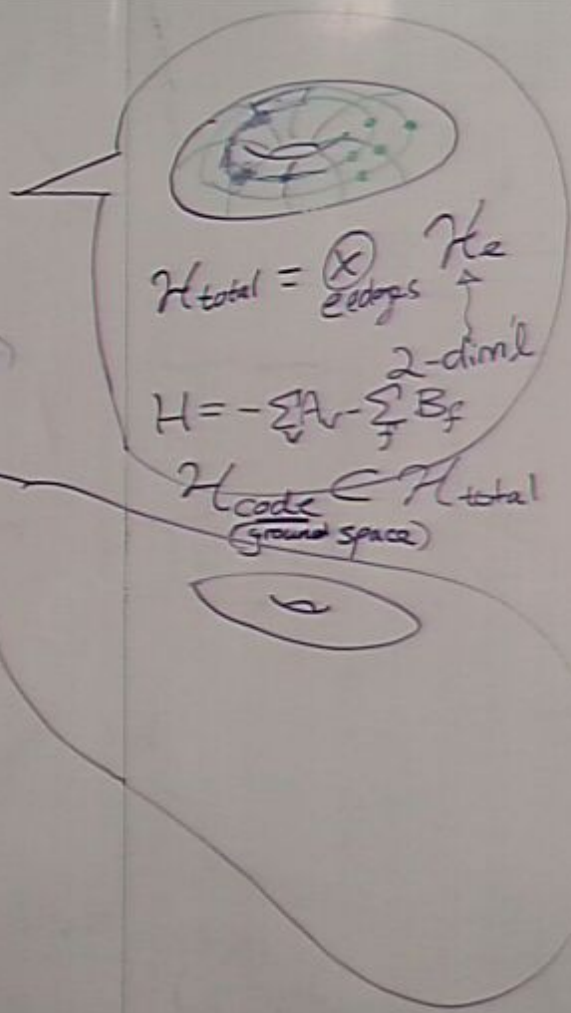 H total = ⊗ e edges H e
2-dim'l
H = - Σ v A v - Σ f B f
H code ⊂ H total
(ground space)